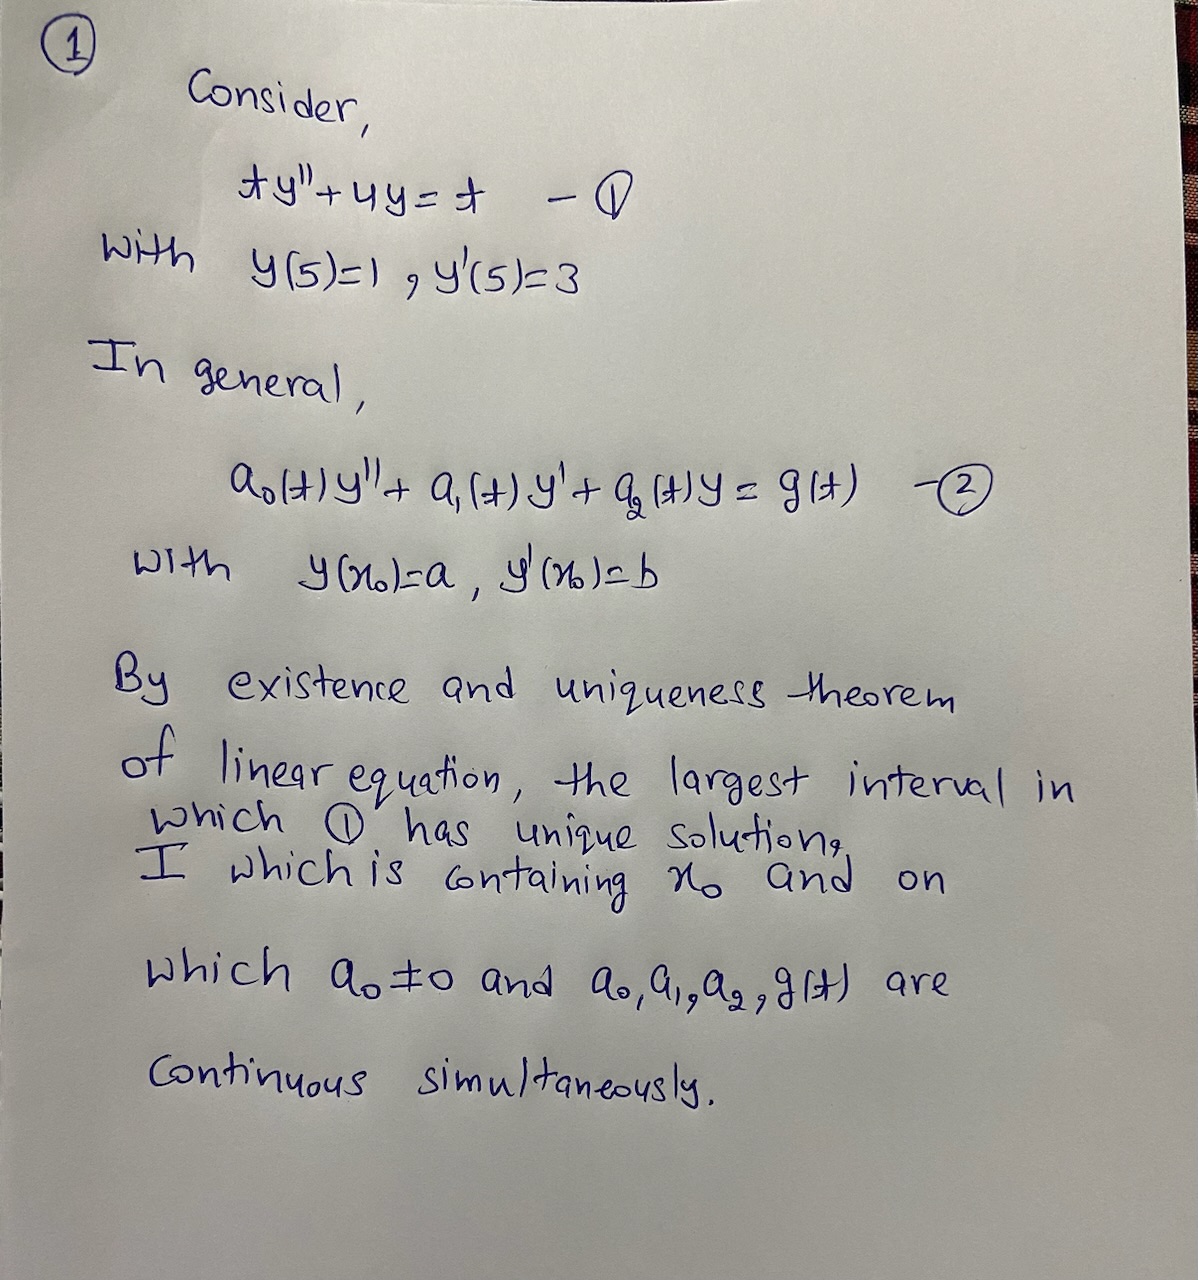 ①
Consider,
ty"+4y=t — ①
with y(5)=1, y'(5)=3
In general,
a₀(t)y"+ a₁(t)y'+ a₂(t)y = g(t) —②
with y(x₀)=a, y'(x₀)=b
By existence and uniqueness theorem
of linear equation, the largest interval in
which ① has unique solution,
I which is containing x₀ and on
which a₀≠0 and a₀,a₁,a₂,g(t) are
continuous simultaneously.